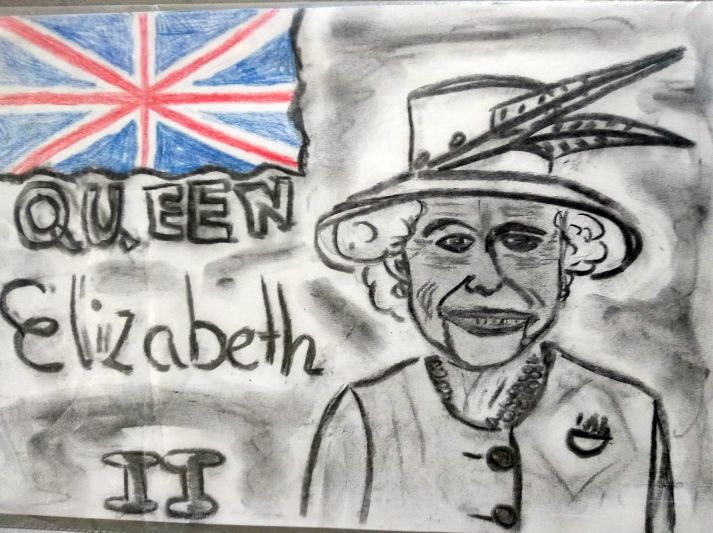 QUEEN
Elizabeth
II